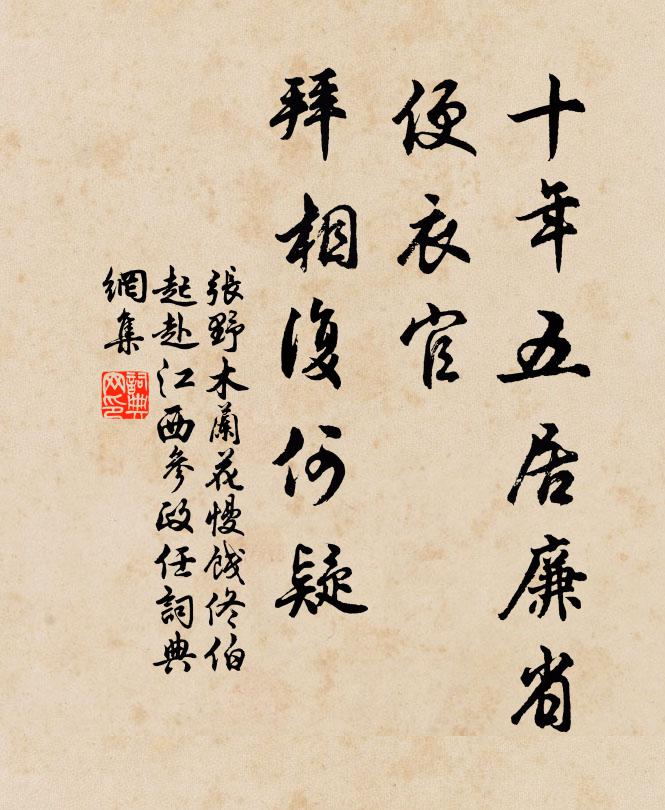 十年五居廉省
便衣官
拜相復何疑
張野木蘭花慢餞佟伯
起赴江西參政任詞典
網集
詞典
網印